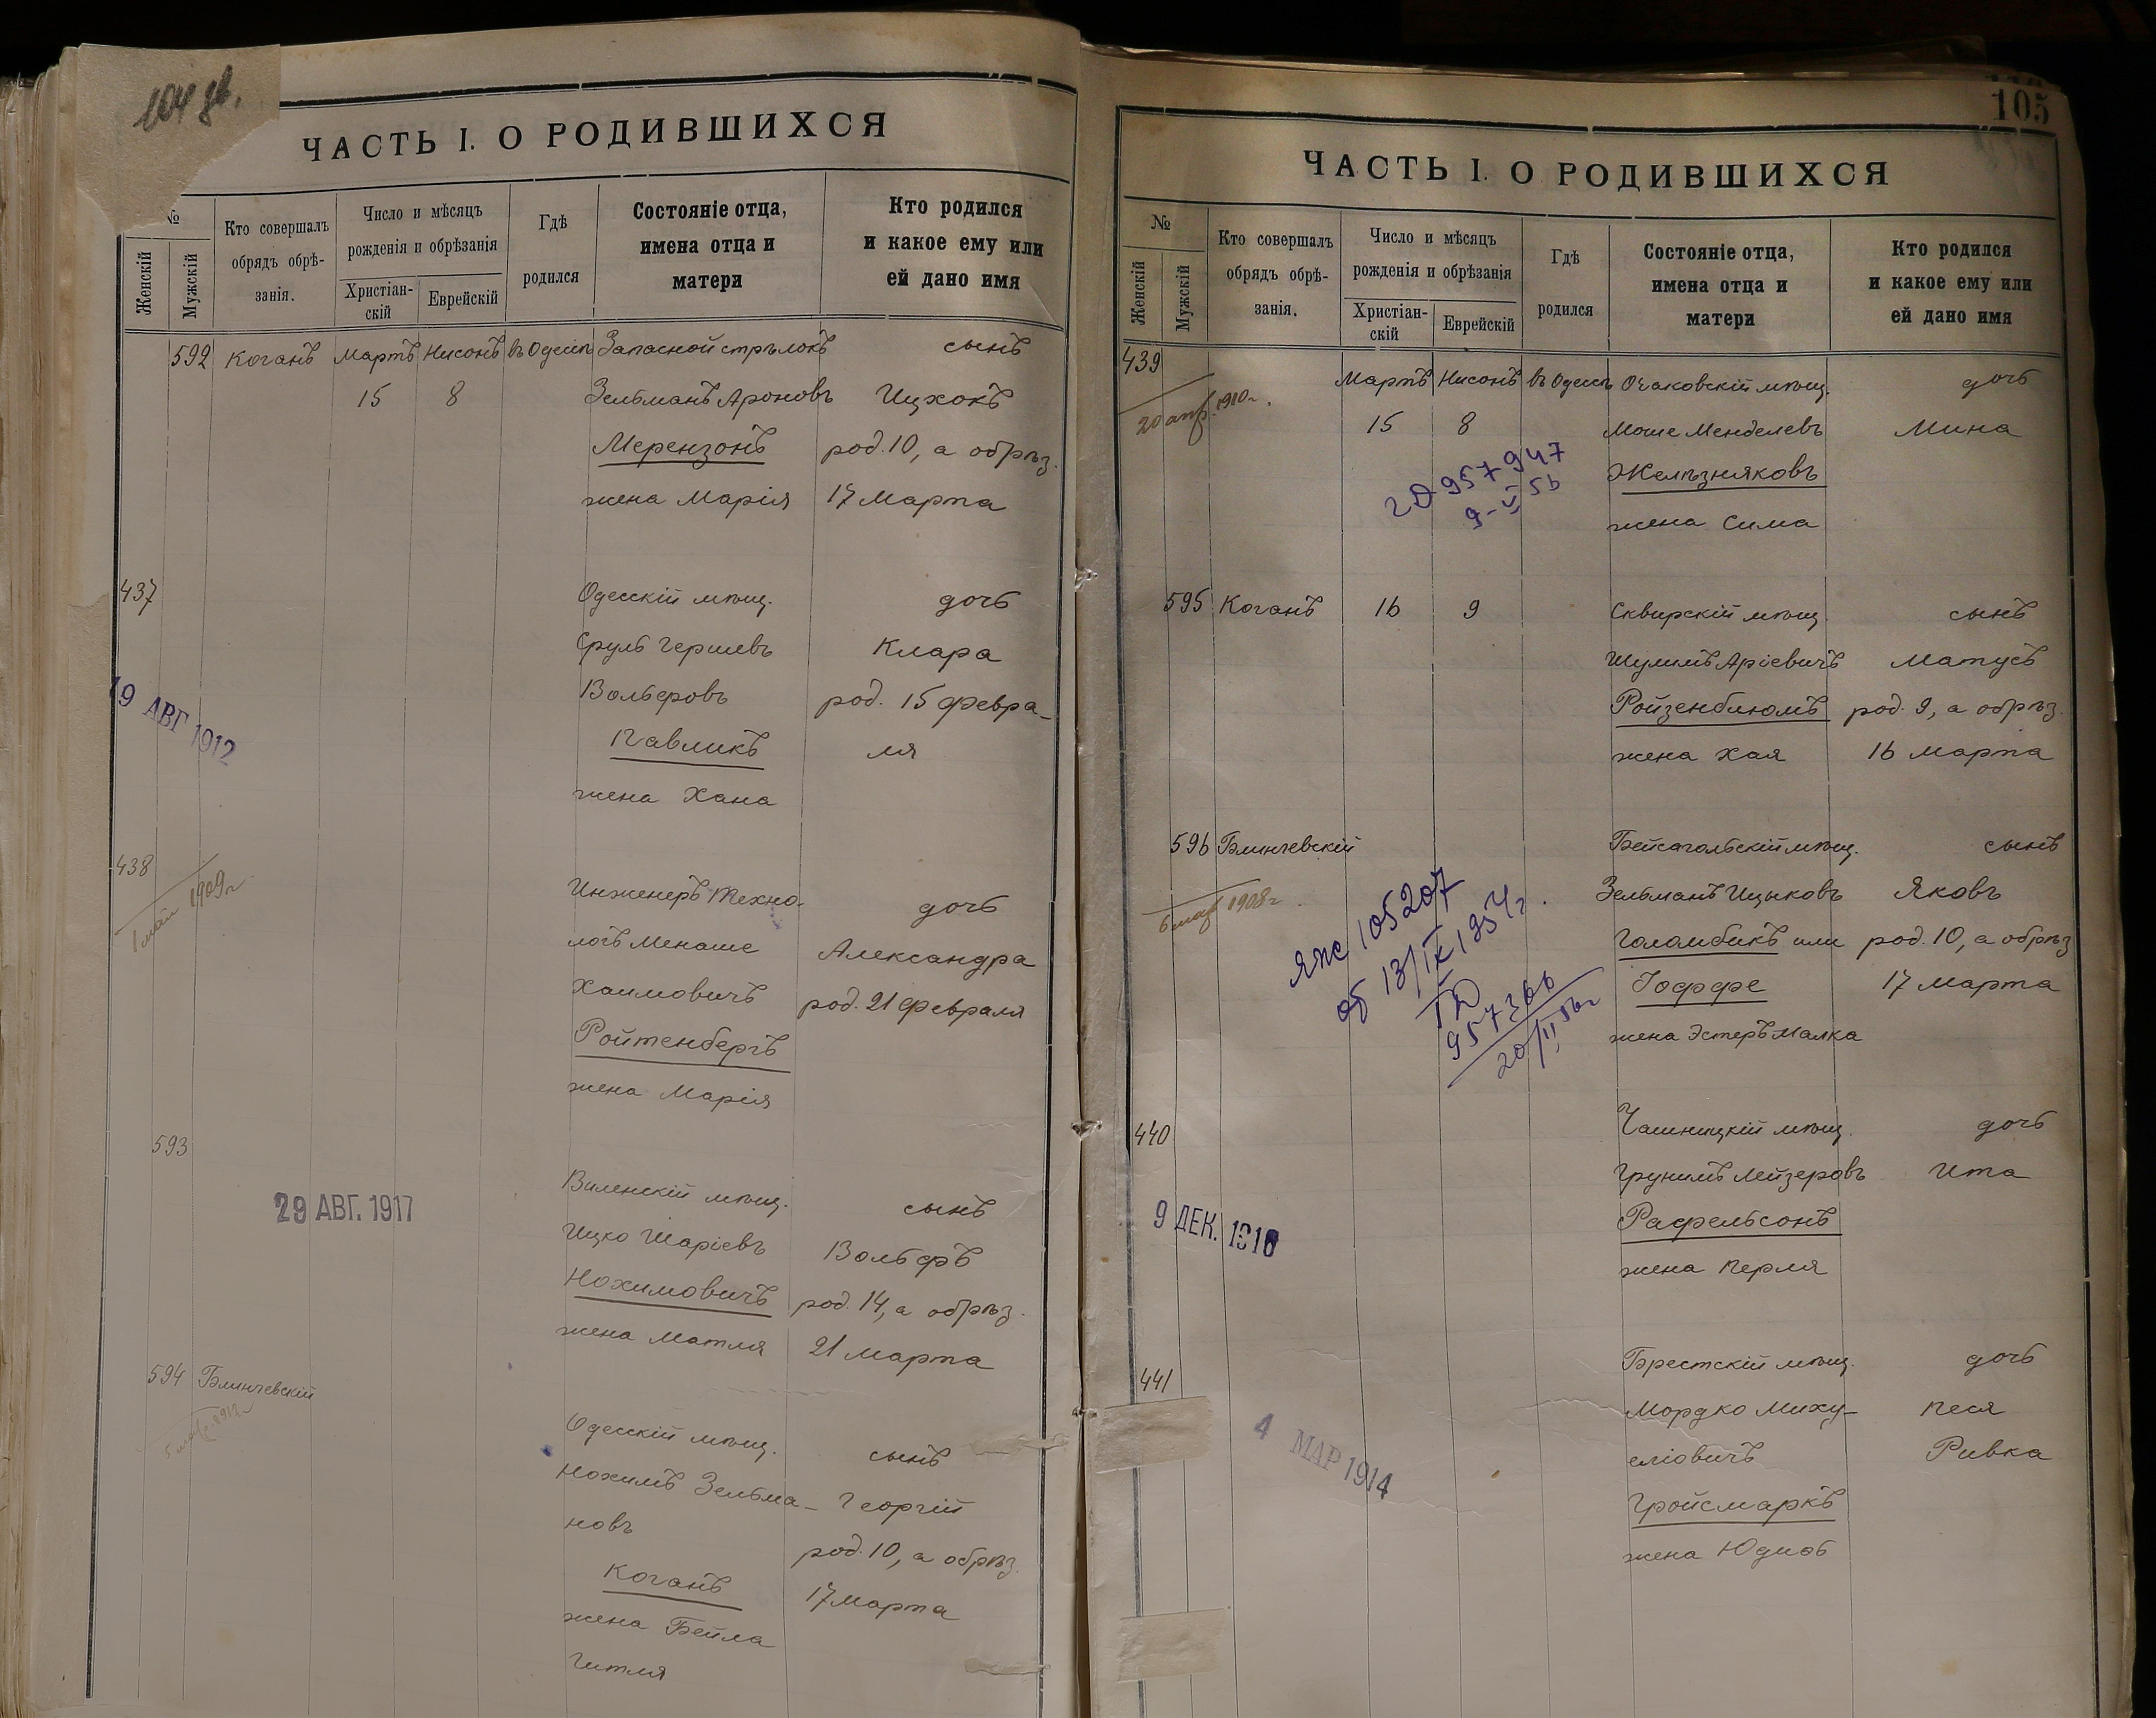 104 об.
ЧАСТЬ I. О РОДИВШИХСЯ
№
Женскій
Мужскій
Кто совершалъ
обрядъ обрѣ-
занія.
Число и мѣсяцъ
рожденія и обрѣзанія
Христіан-
скій
Еврейскій
Гдѣ
родился
Состояніе отца,
имена отца и
матери
Кто родился
и какое ему или
ей дано имя
592 Коганъ Мартъ Нисонъ въ Одессѣ Запасной стрѣлокъ сынъ
15 8 Зельманъ Ароновъ Ицхокъ
Мерензонъ род. 10, а обрѣз.
жена Марія 17 Марта
437 Одесскій мѣщ. дочь
Сруль Гершевъ Клара
Вольфовъ род. 15 февра-
Павликъ ля
жена Хана
19 АВГ 1912
438 Инженеръ Техно- дочь
1 май 1909 г
логъ Менаше Александра
Хаимовичъ род. 21 февраля
Ройтенбергъ
жена Марія
593 Виленскій мѣщ. сынъ
29 АВГ. 1917
Ицко Шаріевъ Вольфъ
Нохимовичъ род. 14, а обрѣз.
жена Матля 21 марта
594 Блинчевскій Одесскій мѣщ. сынъ
Нохимъ Зельма- Георгій
новъ род. 10, а обрѣз.
Коганъ 17 марта
жена Бейла
Гитля
105
ЧАСТЬ I. О РОДИВШИХСЯ
№
Женскій
Мужскій
Кто совершалъ
обрядъ обрѣ-
занія.
Число и мѣсяцъ
рожденія и обрѣзанія
Христіан-
скій
Еврейскій
Гдѣ
родился
Состояніе отца,
имена отца и
матери
Кто родился
и какое ему или
ей дано имя
439 Мартъ Нисонъ въ Одессѣ Очаковскій мѣщ. дочь
20 апр. 1910 г.
15 8 Моше Менделевъ Мина
Желѣзняковъ
жена Сима
957947
595 Коганъ 16 9 Сквирскій мѣщ. сынъ
Шулимъ Аріевичъ Матусъ
Ройзенблюмъ род. 9, а обрѣз.
жена Хая 16 марта
596 Блинчевскій Бейсагольскій мѣщ. сынъ
6 мар 1908 г.
Зельманъ Ицыковъ Яковъ
Голомбикъ или род. 10, а обрѣз
Іоффе 17 марта
жена Эстеръ Малка
105207
от 13/IX 1954 г.
957366
20/II 56 г
440 Чашницкій мѣщ. дочь
Грунимъ Лейзеровъ Ита
Рафельсонъ
жена Перля
9 ДЕК. 1916
441 Брестскій мѣщ. дочь
Мордко Миху- Песя
еліовичъ Ривка
Гройсмаркъ
жена Юдиѳь
4 МАР 1914